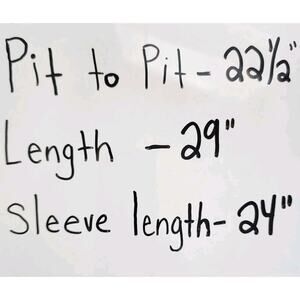 Pit to Pit - 22½"
Length - 29"
Sleeve length - 24"